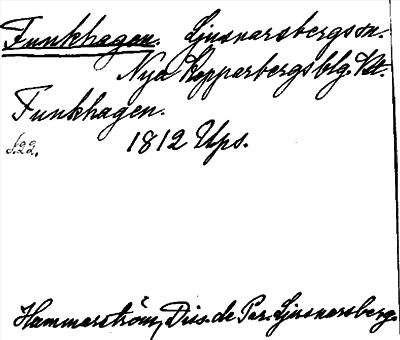 Funkhagen. Ljusnarsbergs sn.
Nya Kopparbergs blg. Vstm.
Funkhagen.
s. 22. 1812 Ups.
Hammarström, Diss. de Par. Ljusnarsberg.